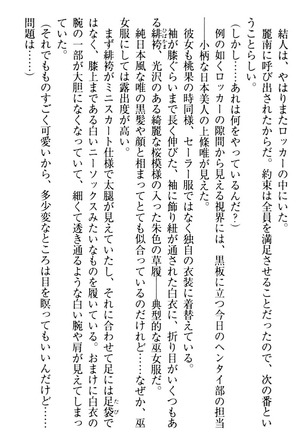 結人は、やはりまたロッカーの中にいた。
麗南に呼び出されたからだ。約束は全員を満足させることだったので、次の番とい
うことらしい。
(しかし……あれは何をやっているんだ？)
例の如くロッカーの隙間から見える視界には、黒板に立つ今日のヘンタイ部の担当
――小柄な日本美人の上條唯が見えた。
彼女も桃果の時同様、セーラー服ではなく独自の衣装に着替えている。
袖が膝ぐらいまで長く伸びた、袖に飾り紐が通された白衣に、折り目がいくつもあ
る緋袴、光沢のある綺麗な桜模様の入った朱色の草履――典型的な巫女服だ。
純日本風な唯の黒髪や顔と相まってとても似合っているのだけれど……なぜか、巫
女服にしては露出度が高い。
まず緋袴がミニスカート仕様で太腿が見えていたし、それに合わせて足には足袋で
はなく、膝上まである白いニーソックスみたいなものを履いている。おまけに白衣の
腕の一部が大胆になくなっていて、細くて透き通るような白い腕や肩が見えてしまっ
ていた。
(それでものすごく可愛いから、多少変なところは目を瞑ってもいいんだけど……
問題は……)